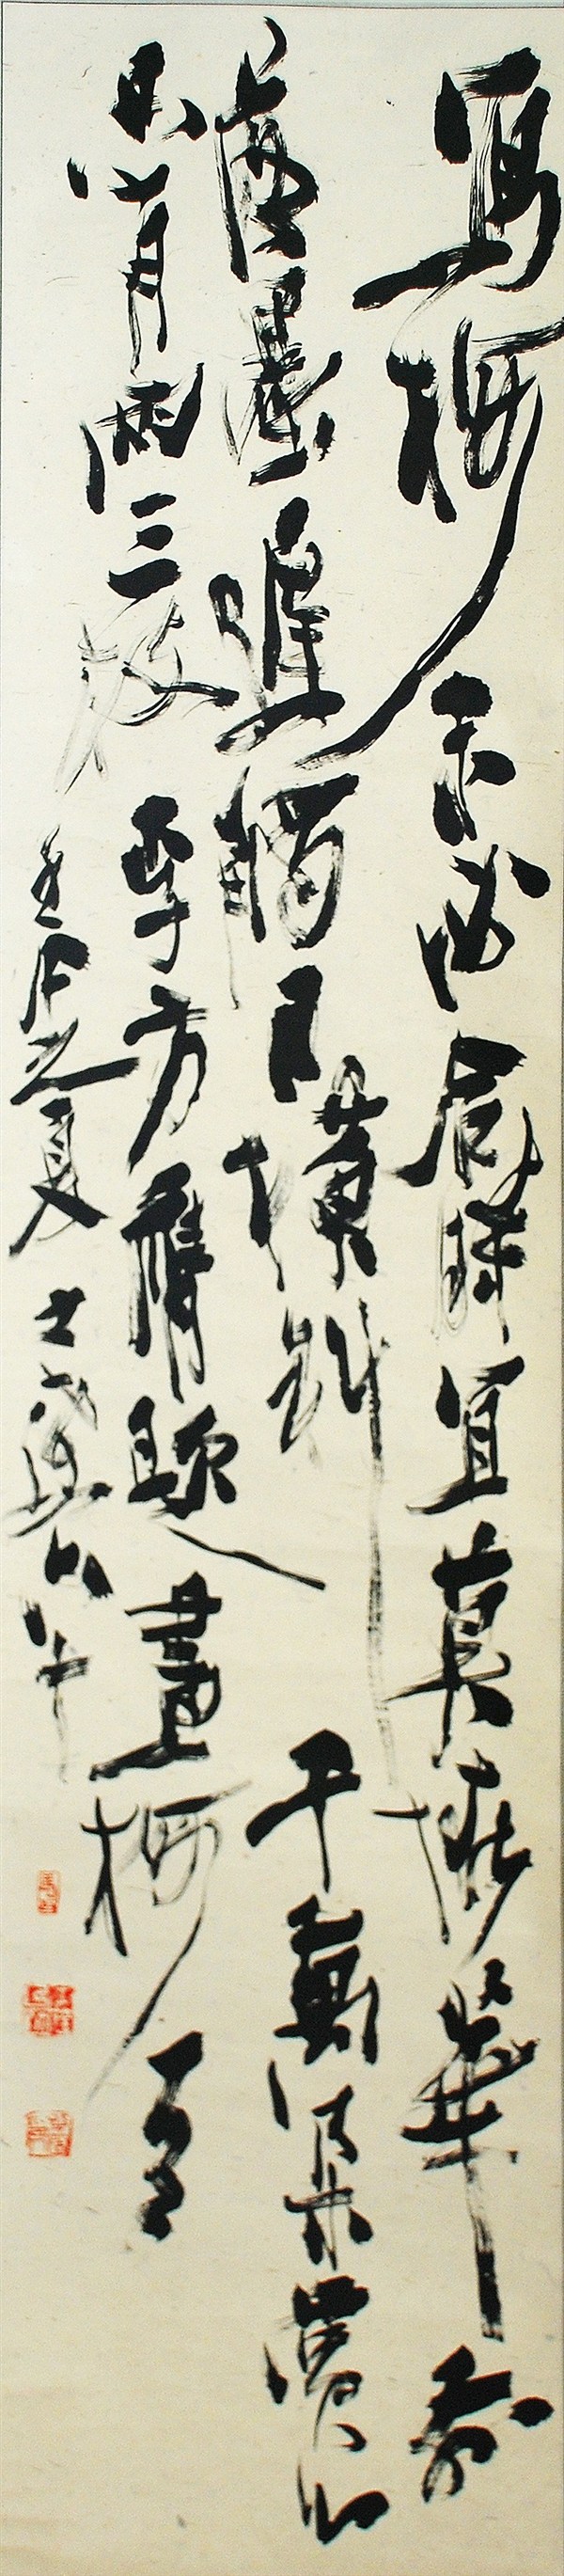 寫梅未必合時宜莫怪華前
落墨遲觸目橫斜千萬朵賞心
只有兩三枝李方膺題畫梅句
之夏